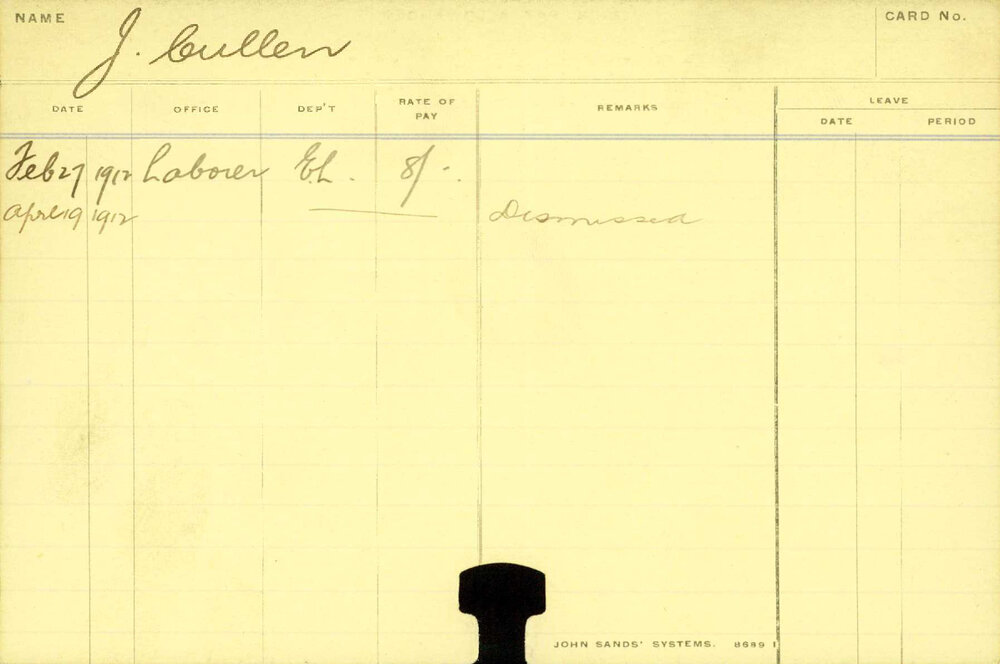 NAME J. Cullen CARD No.
DATE OFFICE DEP'T RATE OF PAY REMARKS LEAVE
DATE PERIOD
Feb 27 1912 Laborer EL. 8/-.
April 19 1912 Dismissed
JOHN SANDS' SYSTEMS. 8689 1